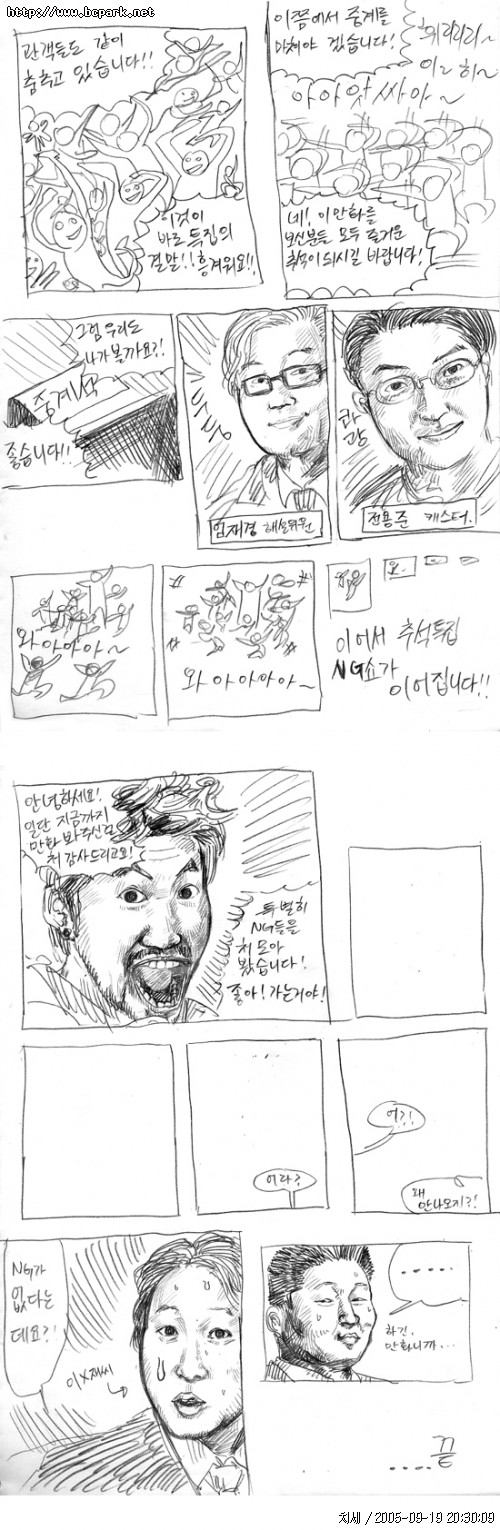 http://www.bcpark.net
관객들도 같이
춤추고 있습니다!!
이것이
바로 특집의
결말!! 흥겨워요!!
이쯤에서 중계를
마쳐야 겠습니다!
휘리리리~
이ㄹ 히~
아아앗싸아~
네! 이 만화를
보신분들 모두 즐거운
추석이 되시길 바랍니다!
그럼 우리도
나가볼까요?!
중계석
좋습니다!!
두둥
엄재경 해설위원
콰광
전용준 캐스터.
와 아아아아~
와 아 아아아아~
이어서 추석특집
NG쇼가
이어집니다!!
안녕하세요!
일단 지금까지
만화 봐주신걸
처 감사드리고요!
특별히
NG들을
처 모아
봤습니다!
좋아! 가는거야!
어라?
어?!
왜
안나오지?!
NG가
없다는
데요?!
이X재씨
.....
하긴,
만화니까...
....끝
치세 / 2005-09-19 20:30:09